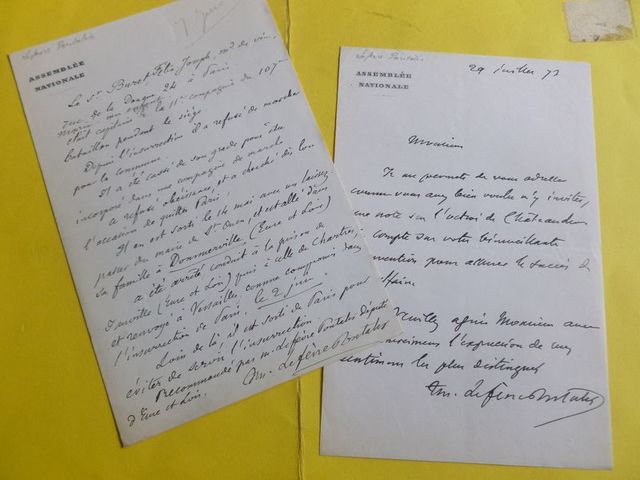 Lefèvre Pontalis
7 juin
ASSEMBLÉE
NATIONALE
Le Sr Buret Félix Joseph, md de vin,
rue de la 24 à Paris
marié, un enfant
était capitaine à la 11e compagnie du 107e
bataillon pendant le siège.
Depuis l'insurrection il a refusé de marcher
pour la commune.
Il a été cassé de son grade pour être
incorporé dans une compagnie de marche.
a refusé obéissance, et a cherché dès lors
l'occasion de quitter Paris.
Il en est sorti le 14 mai avec un laissez
passer du maire de St Ouen, et est allé dans
sa famille à Dommerville (Eure et Loir)
a été arrêté conduit à la prison de
Janville (Eure et Loir) puis à celle de Chartres,
et renvoyé à Versailles, comme compromis dans
l'insurrection de Paris, le 2 juin.
Loin de là, il est sorti de Paris pour
éviter de servir l'insurrection.
Recommandé par m. Lefèvre Pontalis Député
d'Eure et Loir.
Am. Lefèvre Pontalis
Lefèvre Pontalis
ASSEMBLÉE
NATIONALE
29 juillet 73
Monsieur
Je me permets de vous adresser
comme vous avez bien voulu m'y inviter,
une note sur l'octroi de Châteaudun
compte sur votre bienveillante
pour assurer le succès de
affaire.
Veuillez agréer Monsieur avec
l'expression de mes
sentiments les plus distingués
Am. Lefèvre Pontalis